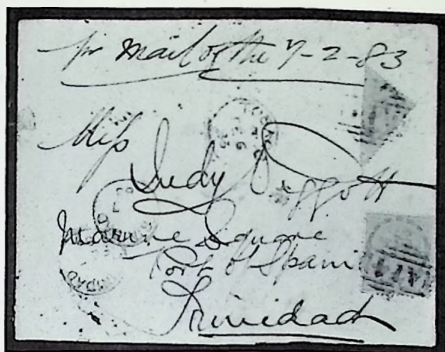 pr mail of the 7-2-83
Miss
Judy Piggott
Marine Square
Port of Spain
Trinidad